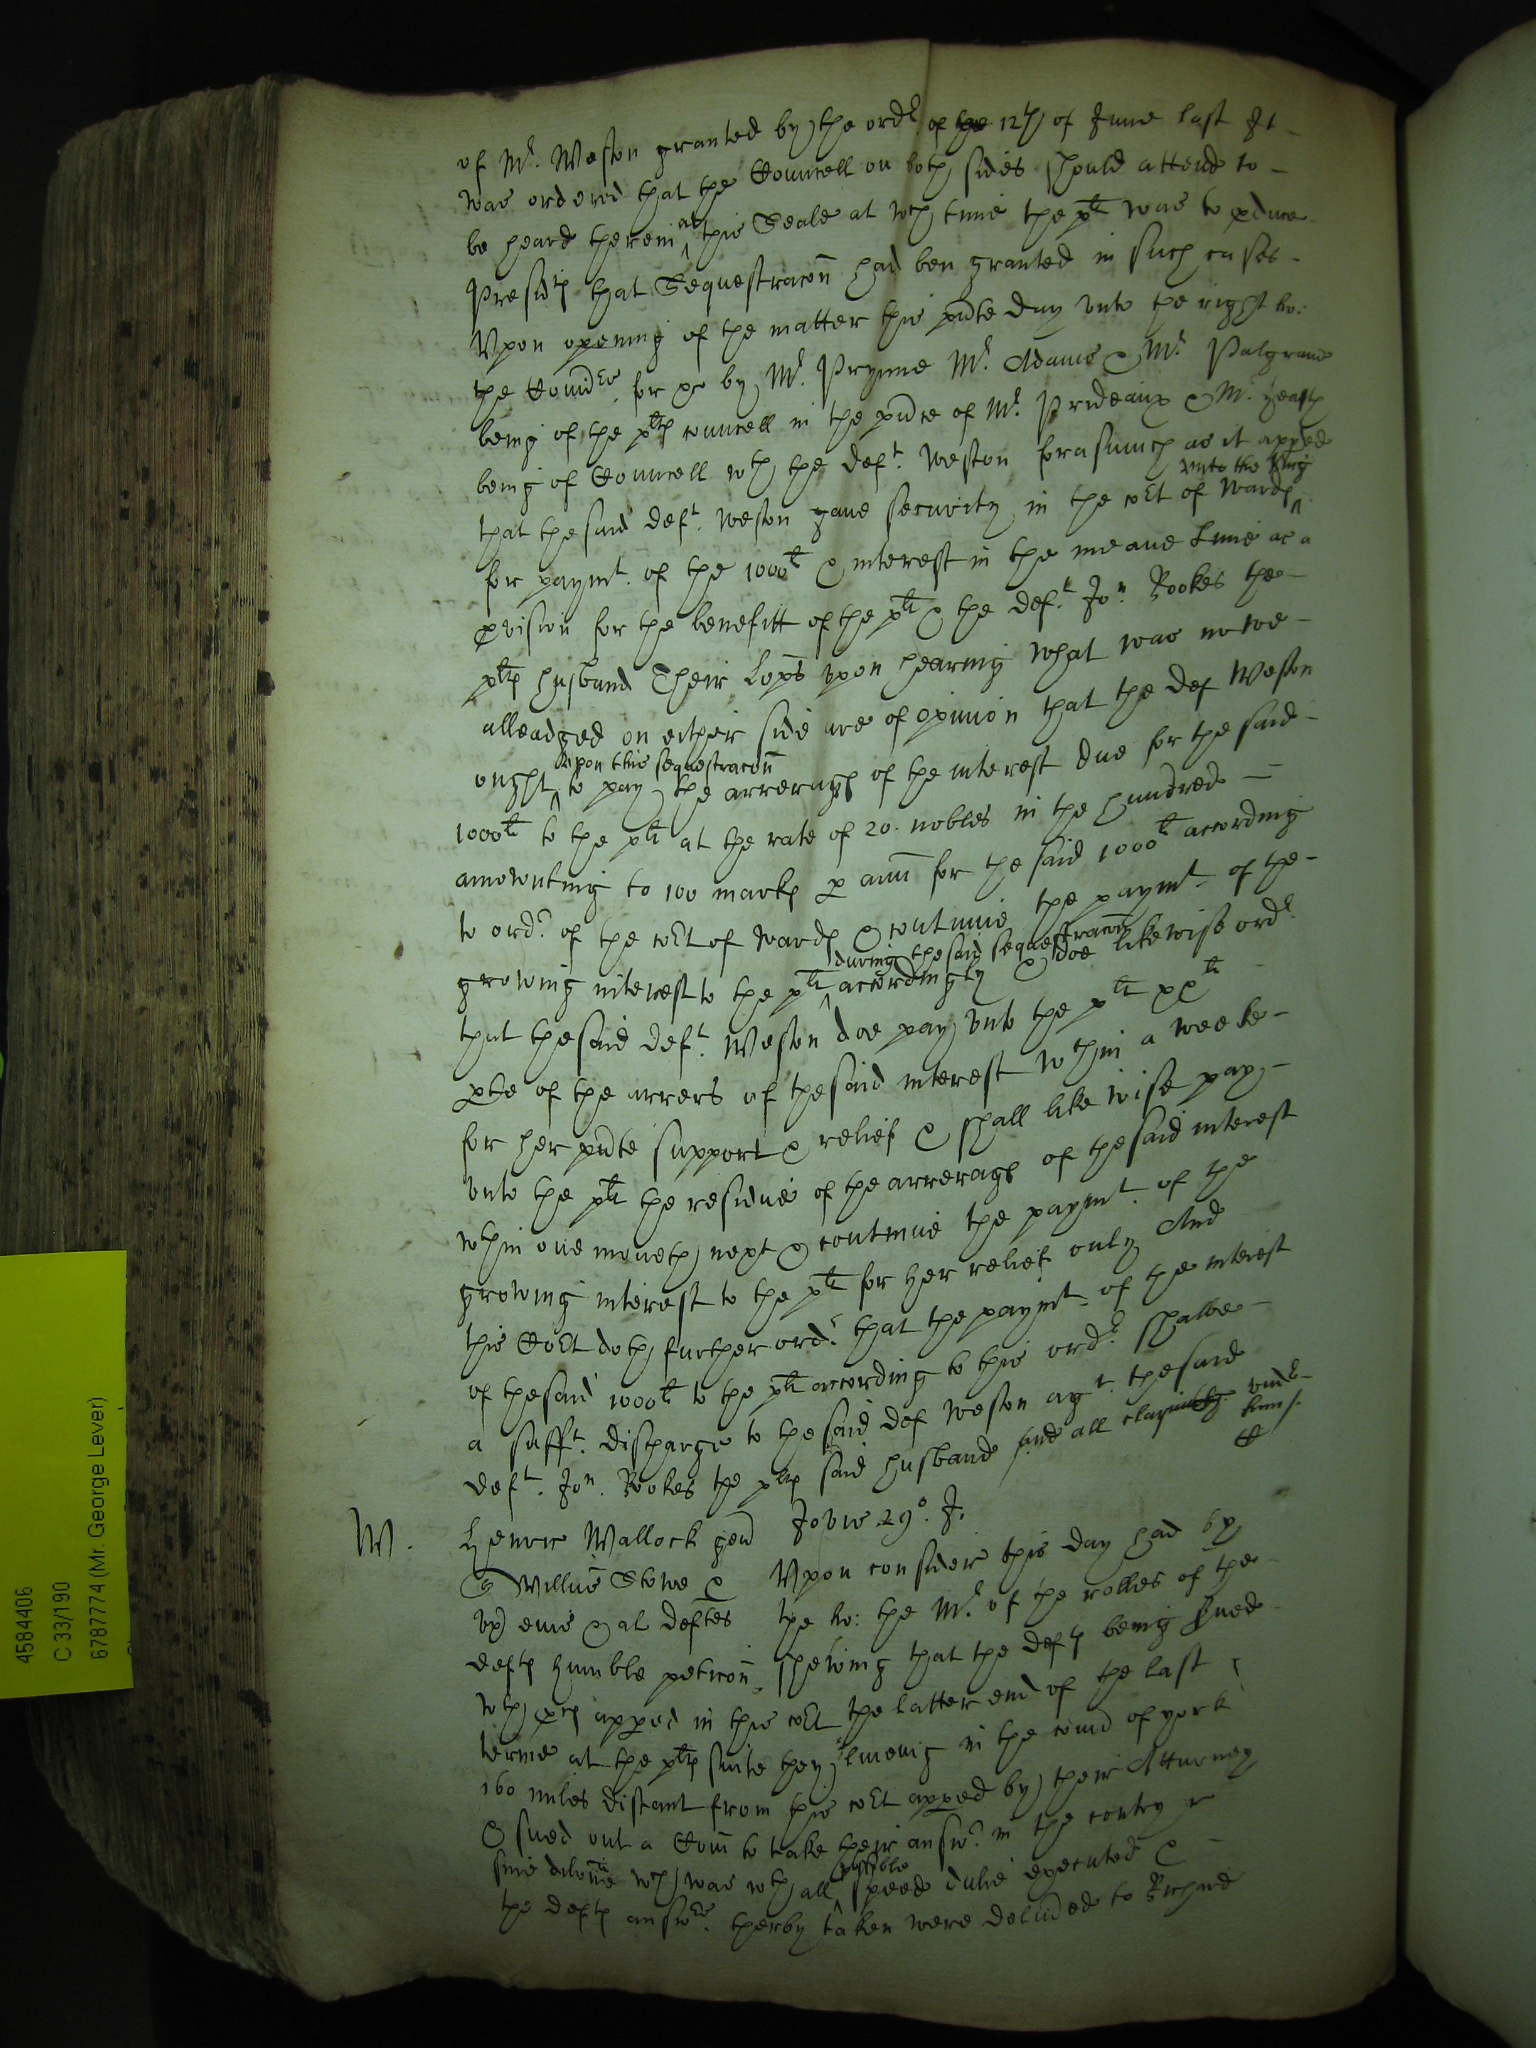 of Mr. Weston granted by the ordr of the 12th of June last It
was ordered that the Councell on both sides should attend to
be heard therein at this Seale at wch time the plt was to pduce
Presidts that Sequestracon had ben granted in such cases
Vpon opening of the matter this pnte day vnto the right ho:
the Comrs. for &c by Mr. Prynne Mr. Adams & Mr. Palgrave
being of the plts councell in the pnce of Mr. Prideaux & Mr.
being of Councell wth the deft. Weston forasmuch as it appred
that the said deft. Weston gave security in the cort of Wards vnto the King
for paymt. of the 1000li & interest in the meane time as a
pvision for the benefitt of the plt & the deft. Jon. Rookes the
plts husband Their Lopps vpon hearing what was nowe
alleadged on either side are of opinion that the def Weston
ought vpon this sequestracon to pay the arrerags of the interest due for the said
1000li to the plt at the rate of 20. nobles in the hundred
amounting to 100 marks p ann for the said 1000li according
to ordr of the cort of Wards & continue the paymt. of the
growing interest to the plt during the said sequestracon accordingly & doe likewise ordr
that the said deft. Weston doe pay vnto the plt xxli
pte of the arrers of the said interest wthin a weeke
for her pnte support & relief & shall likewise pay
vnto the plt the residue of the arrerags of the said interest
wthin one moneth next & continue the paymt. of the
growing interest to the plt for her relief only And
this Cort doth further ordr that the paymt. of the interest
of the said 1000li to the plt according to this ordr shalbe
a sufft. discharge to the said def Weston agt. the said
deft. Jon. Rookes the plts said husband and all clayming vndr him /.
W.
Henric Wallock gen Jovis 29o. J.
& Willus Stowe & Vpon consider this day had by
vx eius & al deftes the ho: the Mr. of the rolles of the
defts humble peticon shewing that the defts being sued
wth pces appred in this cort the latter end of the last
terme at the plts suite they liveing in the com of york
160 miles distant from this cort appred by their Atturney
& sued out a Com to take their answr in the contry
sine dilone wch was wth all possible speed dulie executed &
the defts answrs. therby taken were delivred to Richard
4584406
C 33/190
6787774 (Mr. George Lever)